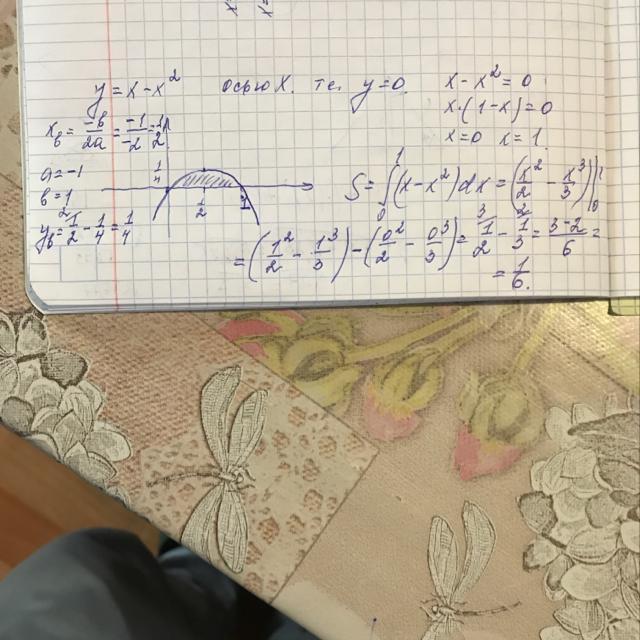 y = x - x² осью X. т.е. y=0. x - x² = 0
x·(1-x)=0
x=0 x=1
x_в = -в/2a = -1/-2 = 1/2
a=-1
в=1
y_в = 1/2 - 1/4 = 1/4
1/4
1/2
1
S = ∫₀¹ (x-x²)dx = (x²/2 - x³/3)|₀¹
= (1²/2 - 1³/3) - (0²/2 - 0³/3) = 1/2 - 1/3 = 3-2/6 =
= 1/6.